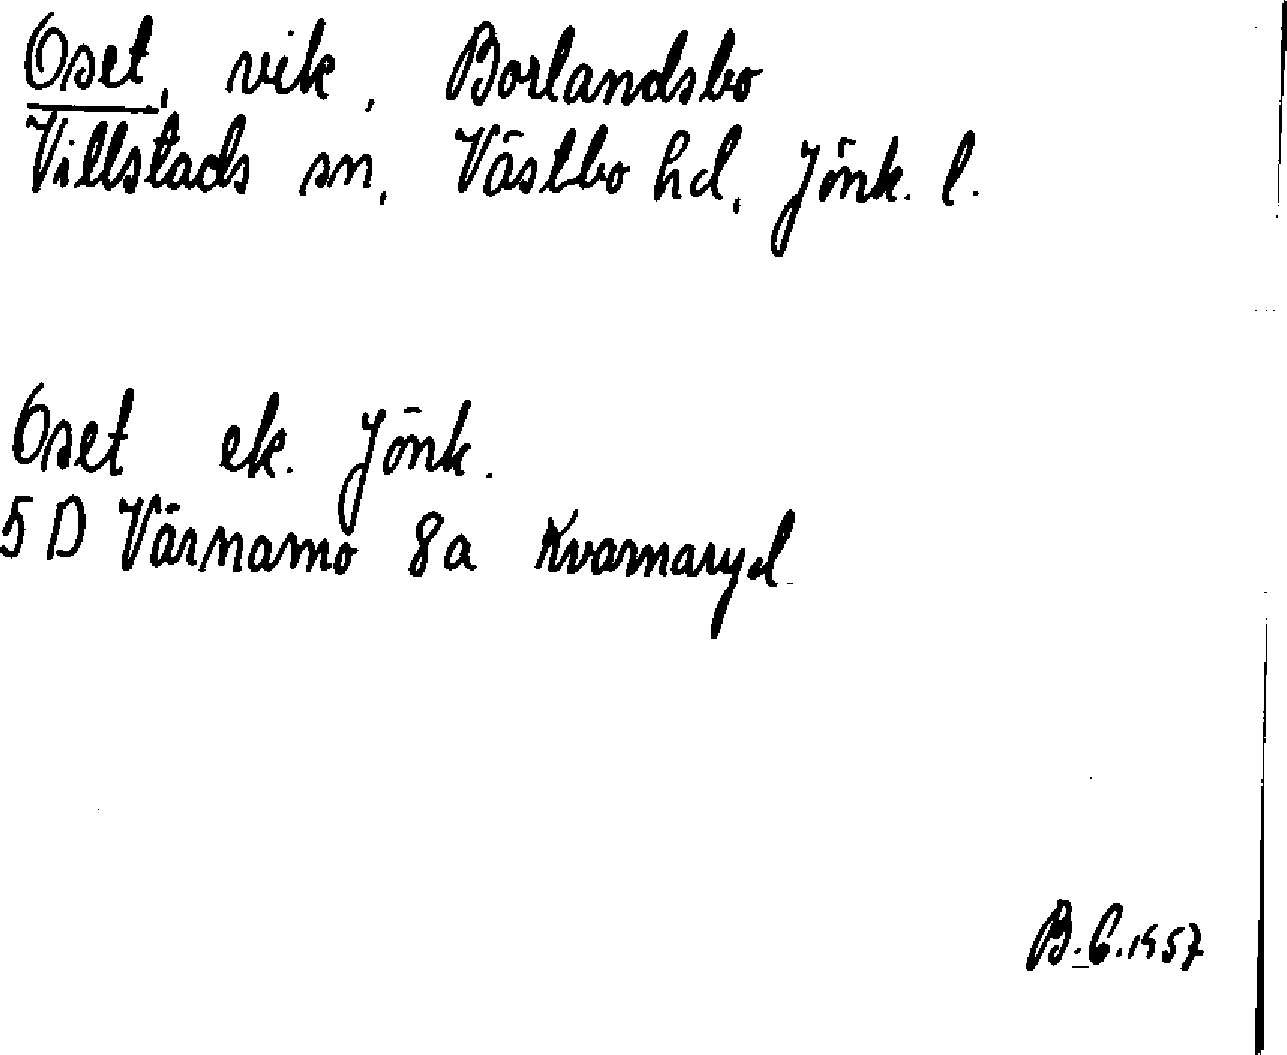 Oset, vik, Borlandsbo
Villstads sn, Västbo hd, Jönk. l.
Oset ek. Jönk.
5 D Värnamo 8a Kvarnaryd
B. C. 1957